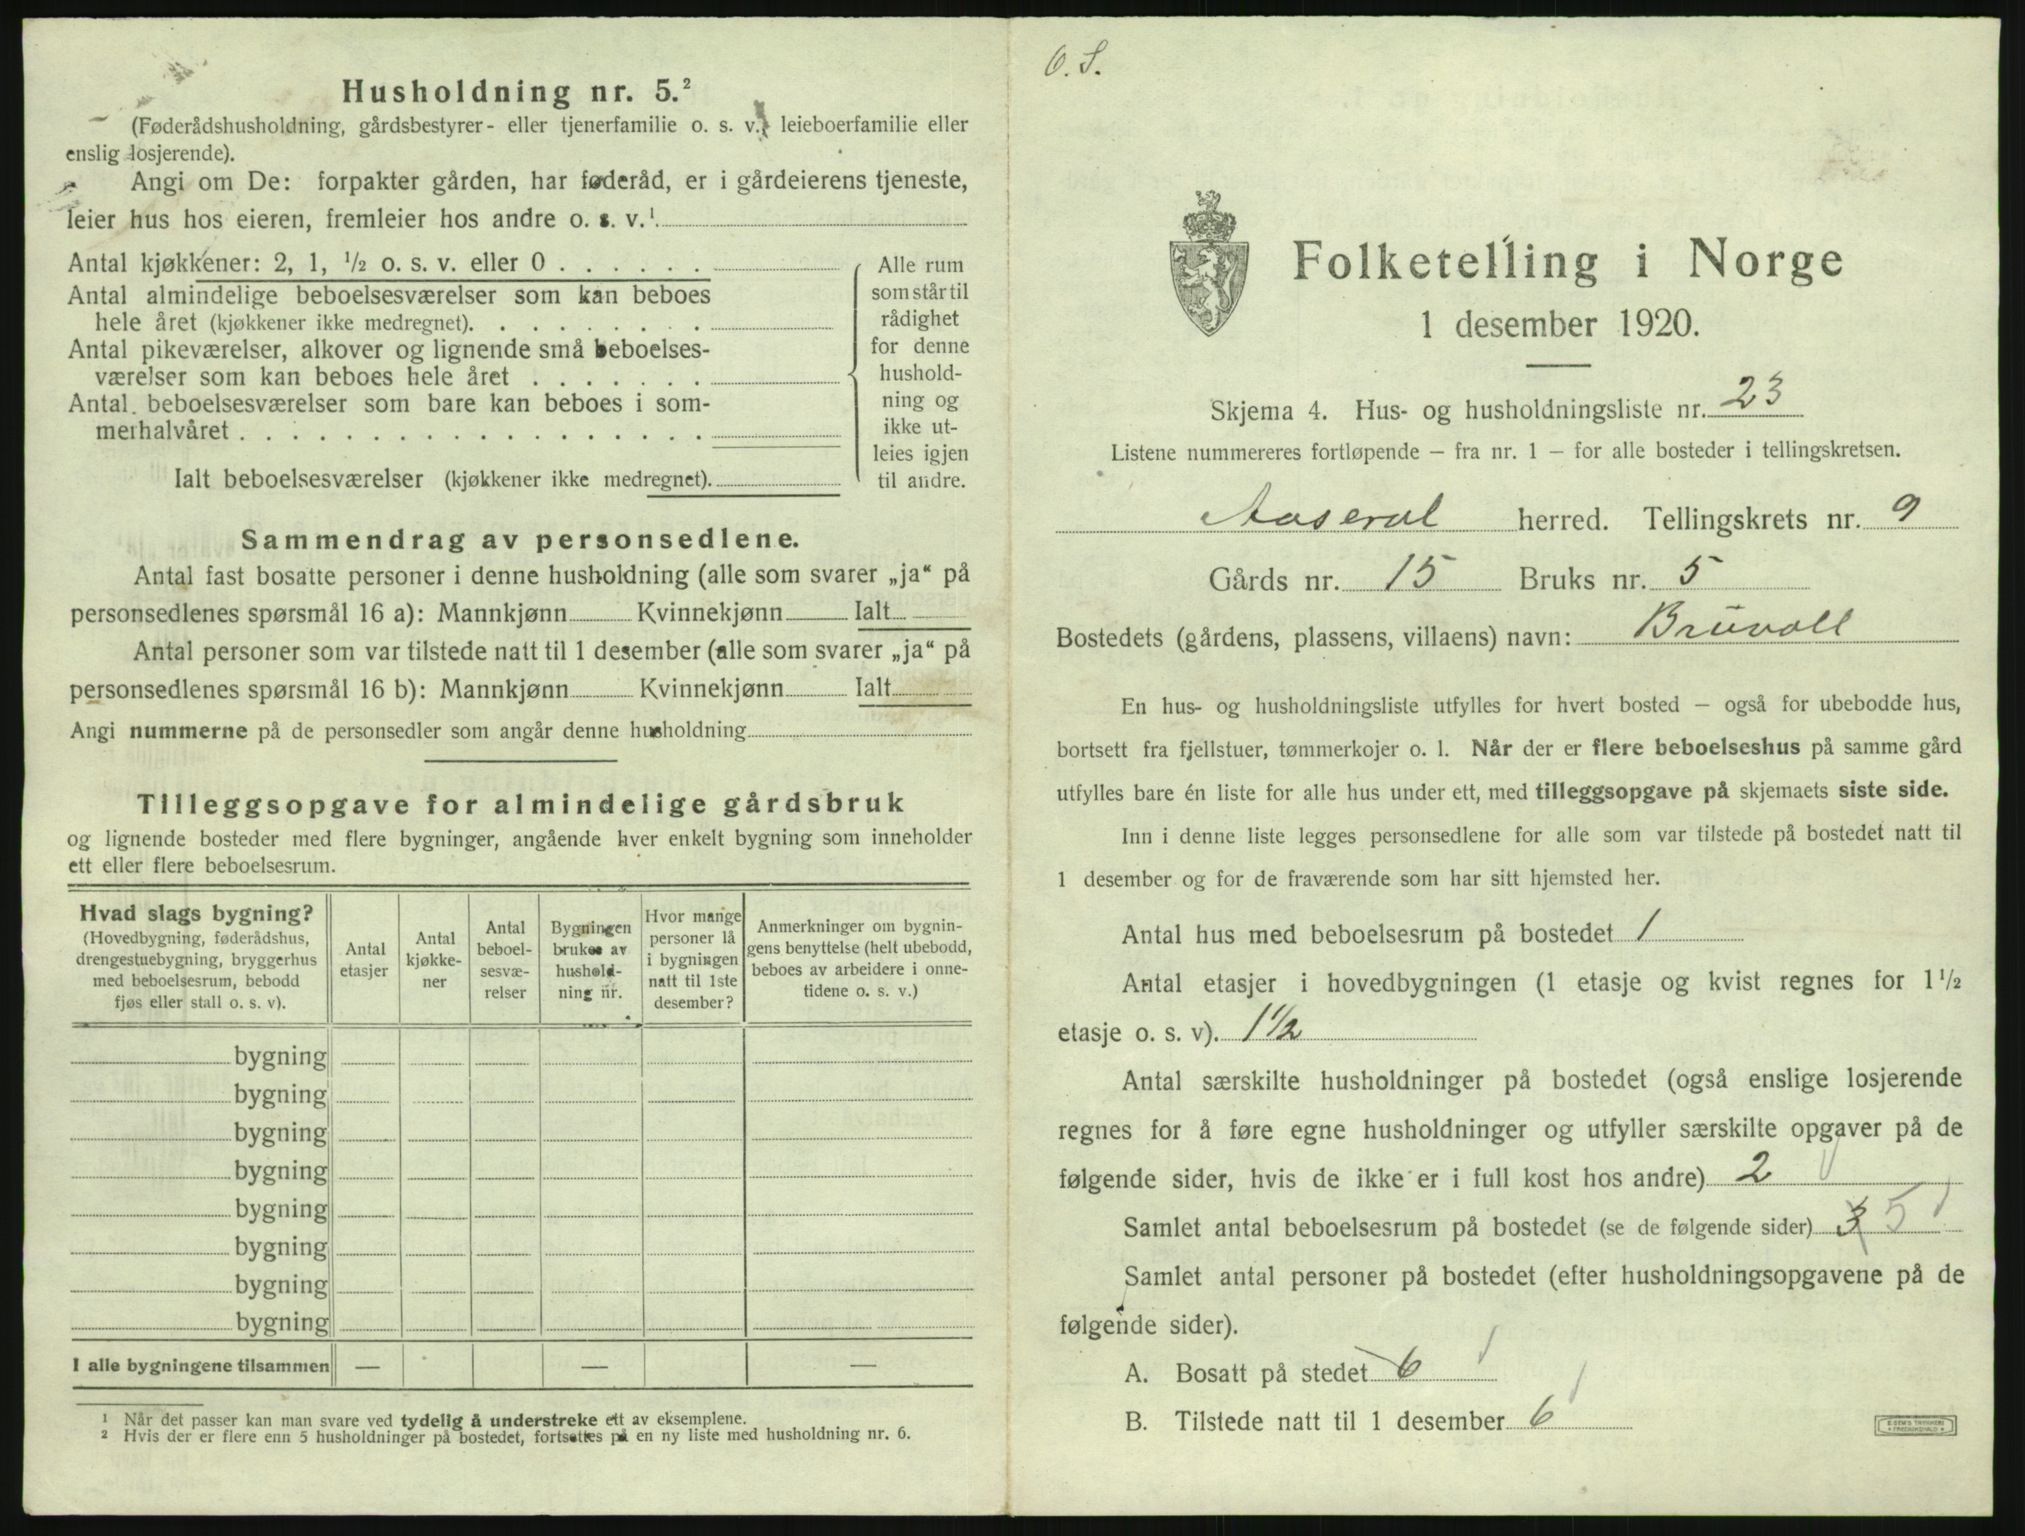 Husholdning nr. 5.²
(Føderådshusholdning, gårdsbestyrer- eller tjenerfamilie o. s. v., leieboerfamilie eller
enslig losjerende).
Angi om De: forpakter gården, har føderåd, er i gårdeierens tjeneste,
leier hus hos eieren, fremleier hos andre o. s. v.¹
Antal kjøkkener: 2, 1, ½ o. s. v. eller 0 . . . . . .
Antal almindelige beboelsesværelser som kan beboes
hele året (kjøkkener ikke medregnet). . . . . . . .
Antal pikeværelser, alkover og lignende små beboelses-
værelser som kan beboes hele året . . . . . . .
Antal beboelsesværelser som bare kan beboes i som-
merhalvåret . . . . . . . . . . . . . . . . . .
Ialt beboelsesværelser (kjøkkener ikke medregnet).
Alle rum
som står til
rådighet
for denne
hushold-
ning og
ikke ut-
leies igjen
til andre.
Sammendrag av personsedlene.
Antal fast bosatte personer i denne husholdning (alle som svarer „ja“ på
personsedlenes spørsmål 16 a): Mannkjønn Kvinnekjønn Ialt
Antal personer som var tilstede natt til 1 desember (alle som svarer „ja“ på
personsedlenes spørsmål 16 b): Mannkjønn Kvinnekjønn Ialt
Angi nummerne på de personsedler som angår denne husholdning
Tilleggsopgave for almindelige gårdsbruk
og lignende bosteder med flere bygninger, angående hver enkelt bygning som inneholder
ett eller flere beboelsesrum.
Hvad slags bygning?
(Hovedbygning, føderådshus,
drengestuebygning, bryggerhus
med beboelsesrum, bebodd
fjøs eller stall o. s. v).
Antal
etasjer
Antal
kjøkke-
ner
Antal
beboel-
sesvæ-
relser
Bygningen
brukes av
hushold-
ning nr.
Hvor mange
personer lå
i bygningen
natt til 1ste
desember?
Anmerkninger om bygnin-
gens benyttelse (helt ubebodd,
beboes av arbeidere i onne-
tidene o. s. v.)
bygning
bygning
bygning
bygning
bygning
bygning
bygning
bygning
I alle bygningene tilsammen — — —
¹ Når det passer kan man svare ved tydelig å understreke ett av eksemplene.
² Hvis der er flere enn 5 husholdninger på bostedet, fortsættes på en ny liste med husholdning nr. 6.
O. S.
Folketelling i Norge
1 desember 1920.
Skjema 4. Hus- og husholdningsliste nr. 23
Listene nummereres fortløpende – fra nr. 1 – for alle bosteder i tellingskretsen.
Aaseral herred. Tellingskrets nr. 9
Gårds nr. 15 Bruks nr. 5
Bostedets (gårdens, plassens, villaens) navn: Brüvoll
En hus- og husholdningsliste utfylles for hvert bosted – også for ubebodde hus,
bortsett fra fjellstuer, tømmerkojer o. l. Når der er flere beboelseshus på samme gård
utfylles bare én liste for alle hus under ett, med tilleggsopgave på skjemaets siste side.
Inn i denne liste legges personsedlene for alle som var tilstede på bostedet natt til
1 desember og for de fraværende som har sitt hjemsted her.
Antal hus med beboelsesrum på bostedet 1
Antal etasjer i hovedbygningen (1 etasje og kvist regnes for 1½
etasje o. s. v). 1½
Antal særskilte husholdninger på bostedet (også enslige losjerende
regnes for å føre egne husholdninger og utfyller særskilte opgaver på de
følgende sider, hvis de ikke er i full kost hos andre) 2
Samlet antal beboelsesrum på bostedet (se de følgende sider) 3 5
Samlet antal personer på bostedet (efter husholdningsopgavene på de
følgende sider).
A. Bosatt på stedet 6
B. Tilstede natt til 1 desember 6